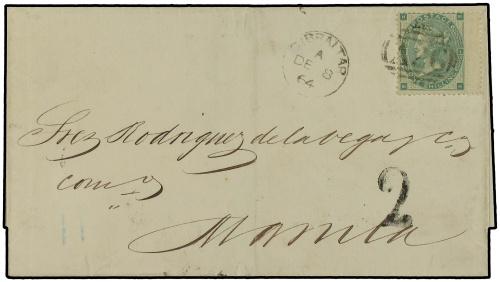 GIBRALTAR
A
DE 8
64
POSTAGE
A26
Srez Rodriguez de la Vega y Ca
com.o
2
Manila